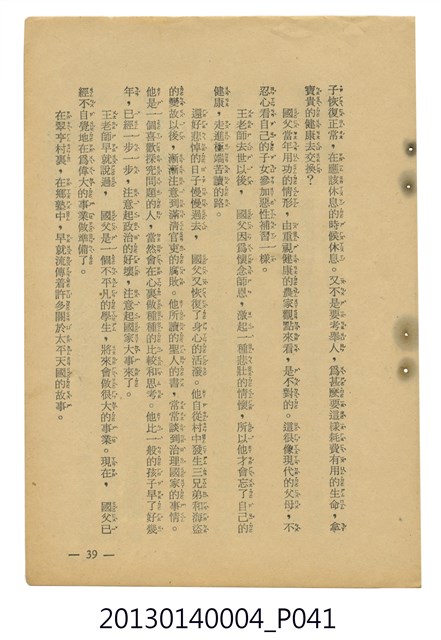 子恢復正常，在應該休息的時候休息。又不是要考舉人，為甚麼要這樣耗費有用的生命，拿
寶貴的健康去交換？
國父當年用功的情形，由重視健康的農家觀點來看，是不對的。這很像現代的父母，不
忍心看自己的子女參加惡性補習一樣。
王老師去世以後，　國父因為懷念師恩，激起一種悲壯的情懷，所以他才會忘了自己的
健康，走進極端苦讀的路。
還好悲悼的日子慢慢過去，　國父又恢復了身心的活潑。他自從村中發生三兄弟和海盜
的變故以後，漸漸注意到滿清官吏的腐敗。他所讀的聖人的書，常常談到治理國家的事情。
他是一個喜歡探究問題的人，當然會在心裏做種種的比較和思考。他比一般的孩子早了好幾
年，已經一步一步，注意起政治的好壞，注意起國家大事來了。
王老師早就說過，　國父是一個不平凡的學生，將來會做很大的事業。現在，　國父已
經不自覺地在為偉大的事業做準備了。
在翠亨村裏，在鄉塾中，早就流傳着許多關於太平天國的故事。
— 39 —
20130140004_P041